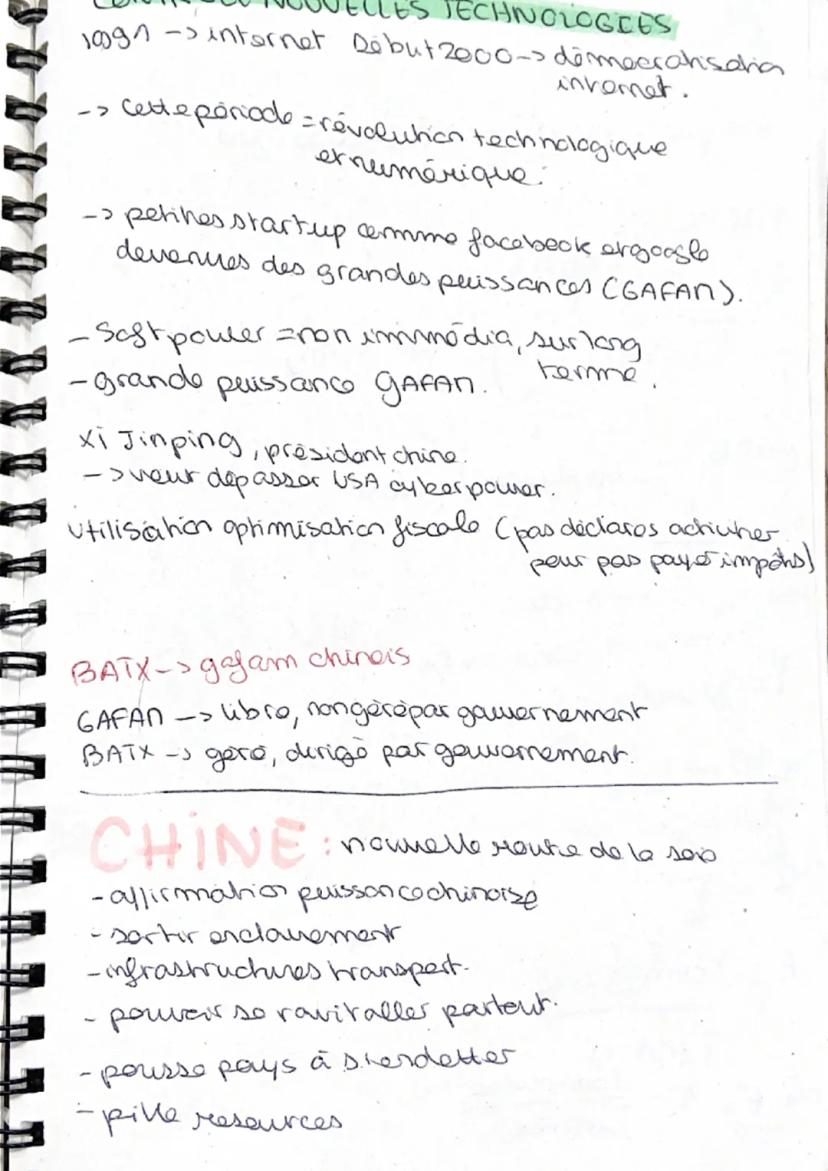 NOUVELLES TECHNOLOGIES
1991 -> internet Début 2000 -> démocratisation
internet.
-> Cette période = révolution technologique
et numérique.
-> petites startup comme facebook et google
devenues des grandes puissances (GAFAM).
- Soft power = non immédia, sur long
terme.
- grande puissance GAFAM.
Xi Jinping, président chine.
-> veut dépasser USA cyberpower.
Utilisation optimisation fiscale (pas déclares activiter
pour pas payer impôts)
BATX -> gafam chinois
GAFAM -> libre, non gèré par gouvernement
BATX -> géré, dirigé par gouvernement.
CHiNE : nouvelle route de la soie
- affirmation puissance chinoise
- sortir enclavement
- infrastructures transport.
- pouvoir se ravitaller partout.
- pousse pays à s'endetter
- pille resources